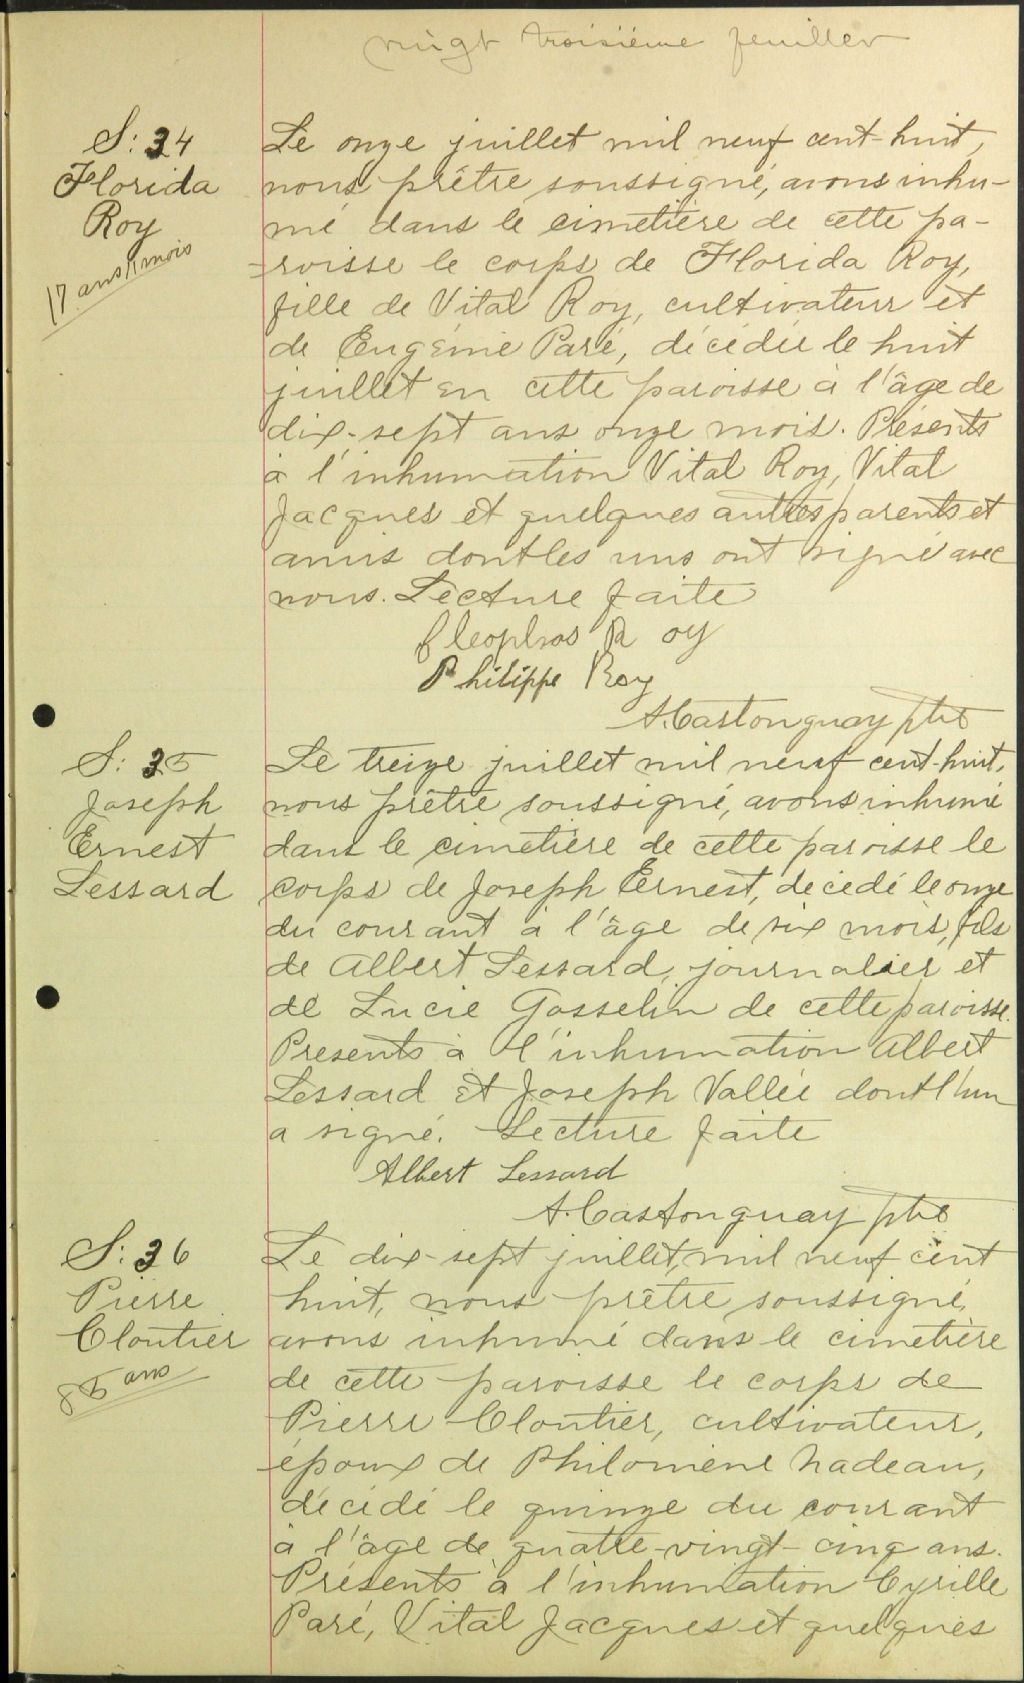 vingt troisième feuillet
S: 34
Florida
Roy
17 ans 11 mois
Le onze juillet mil neuf cent-huit,
nous prêtre soussigné, avons inhu-
mé dans le cimetière de cette pa-
-roisse le corps de Florida Roy,
fille de Vital Roy, cultivateur et
de Eugénie Paré, décédée le huit
juillet en cette paroisse à l'âge de
dix-sept ans onze mois. Présents
à l'inhumation Vital Roy, Vital
Jacques et quelques autres parents et
amis dont les uns ont signé avec
nous. Lecture faite
Cleophas Roy
Philippe Roy
A. Castonguay ptre
S: 35
Joseph
Ernest
Lessard
Le treize juillet mil neuf cent-huit,
nous prêtre soussigné, avons inhumé
dans le cimetière de cette paroisse le
corps de Joseph Ernest, décédé le onze
du courant à l'âge de six mois, fils
de Albert Lessard, journalier et
de Lucie Gosselin de cette paroisse.
Présents à l'inhumation Albert
Lessard et Joseph Vallée dont l'un
a signé. Lecture faite
Albert Lessard
A. Castonguay ptre
S: 36
Pierre
Cloutier
85 ans
Le dix-sept juillet, mil neuf cent
huit, nous prêtre soussigné,
avons inhumé dans le cimetière
de cette paroisse le corps de
Pierre Cloutier, cultivateur,
époux de Philomène Nadeau,
décédé le quinze du courant
à l'âge de quatre-vingt-cinq ans.
Présents à l'inhumation Cyrille
Paré, Vital Jacques et quelques